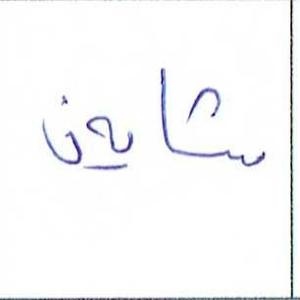 شاهين